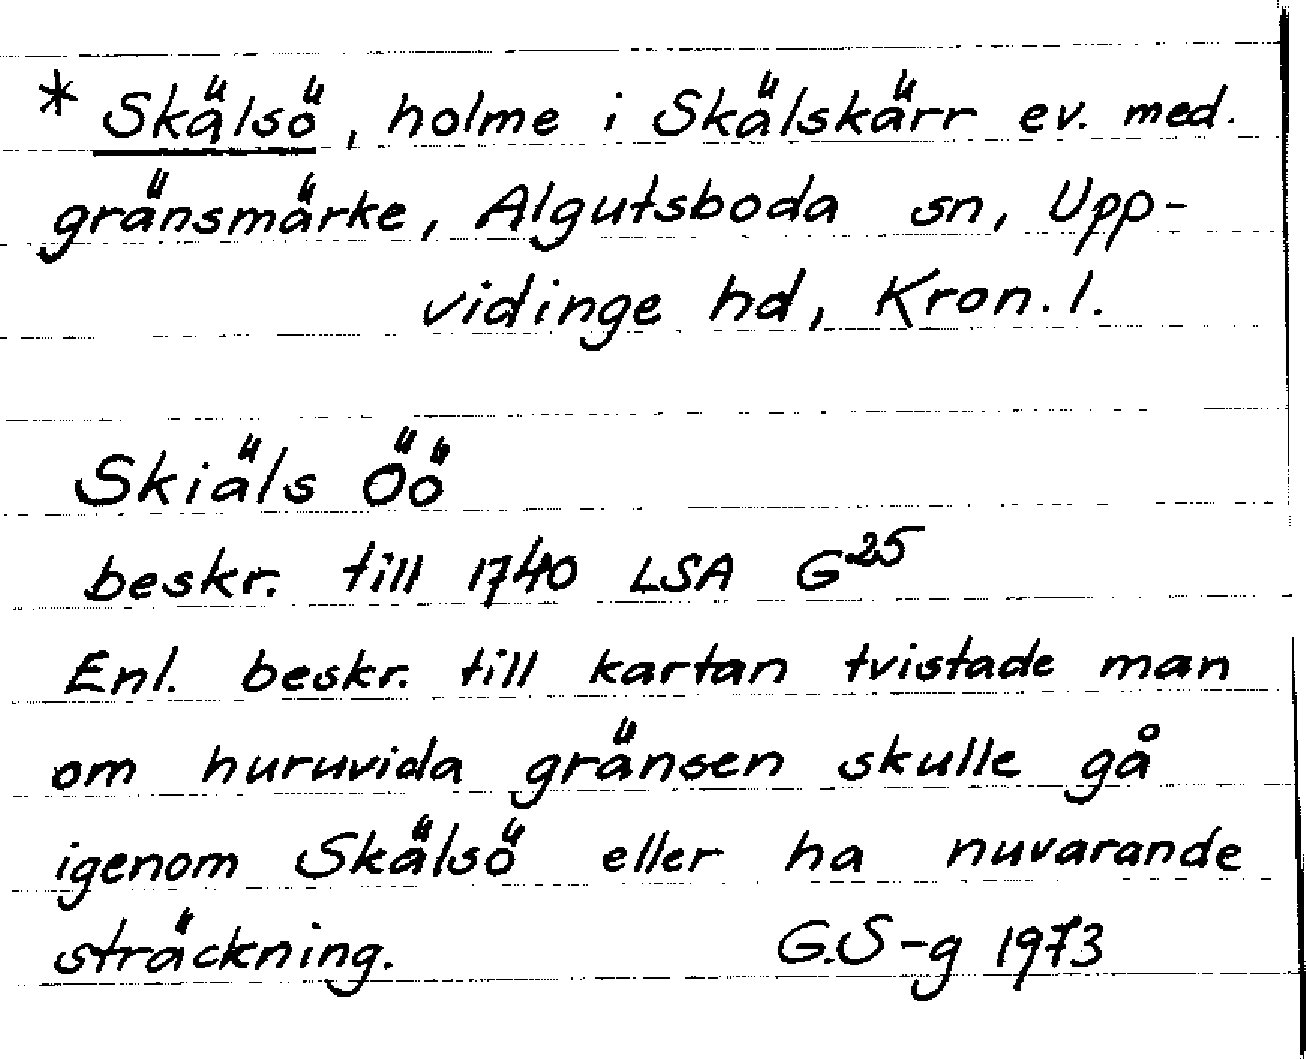 * Skälsö, holme i Skälskärr ev. med.
gränsmärke, Algutsboda sn, Upp-
vidinge hd, Kron. l.
Skiäls Öö
beskr. till 1740 LSA G25
Enl. beskr. till kartan tvistade man
om huruvida gränsen skulle gå
igenom Skälsö eller ha nuvarande
sträckning. G.S-g 1973